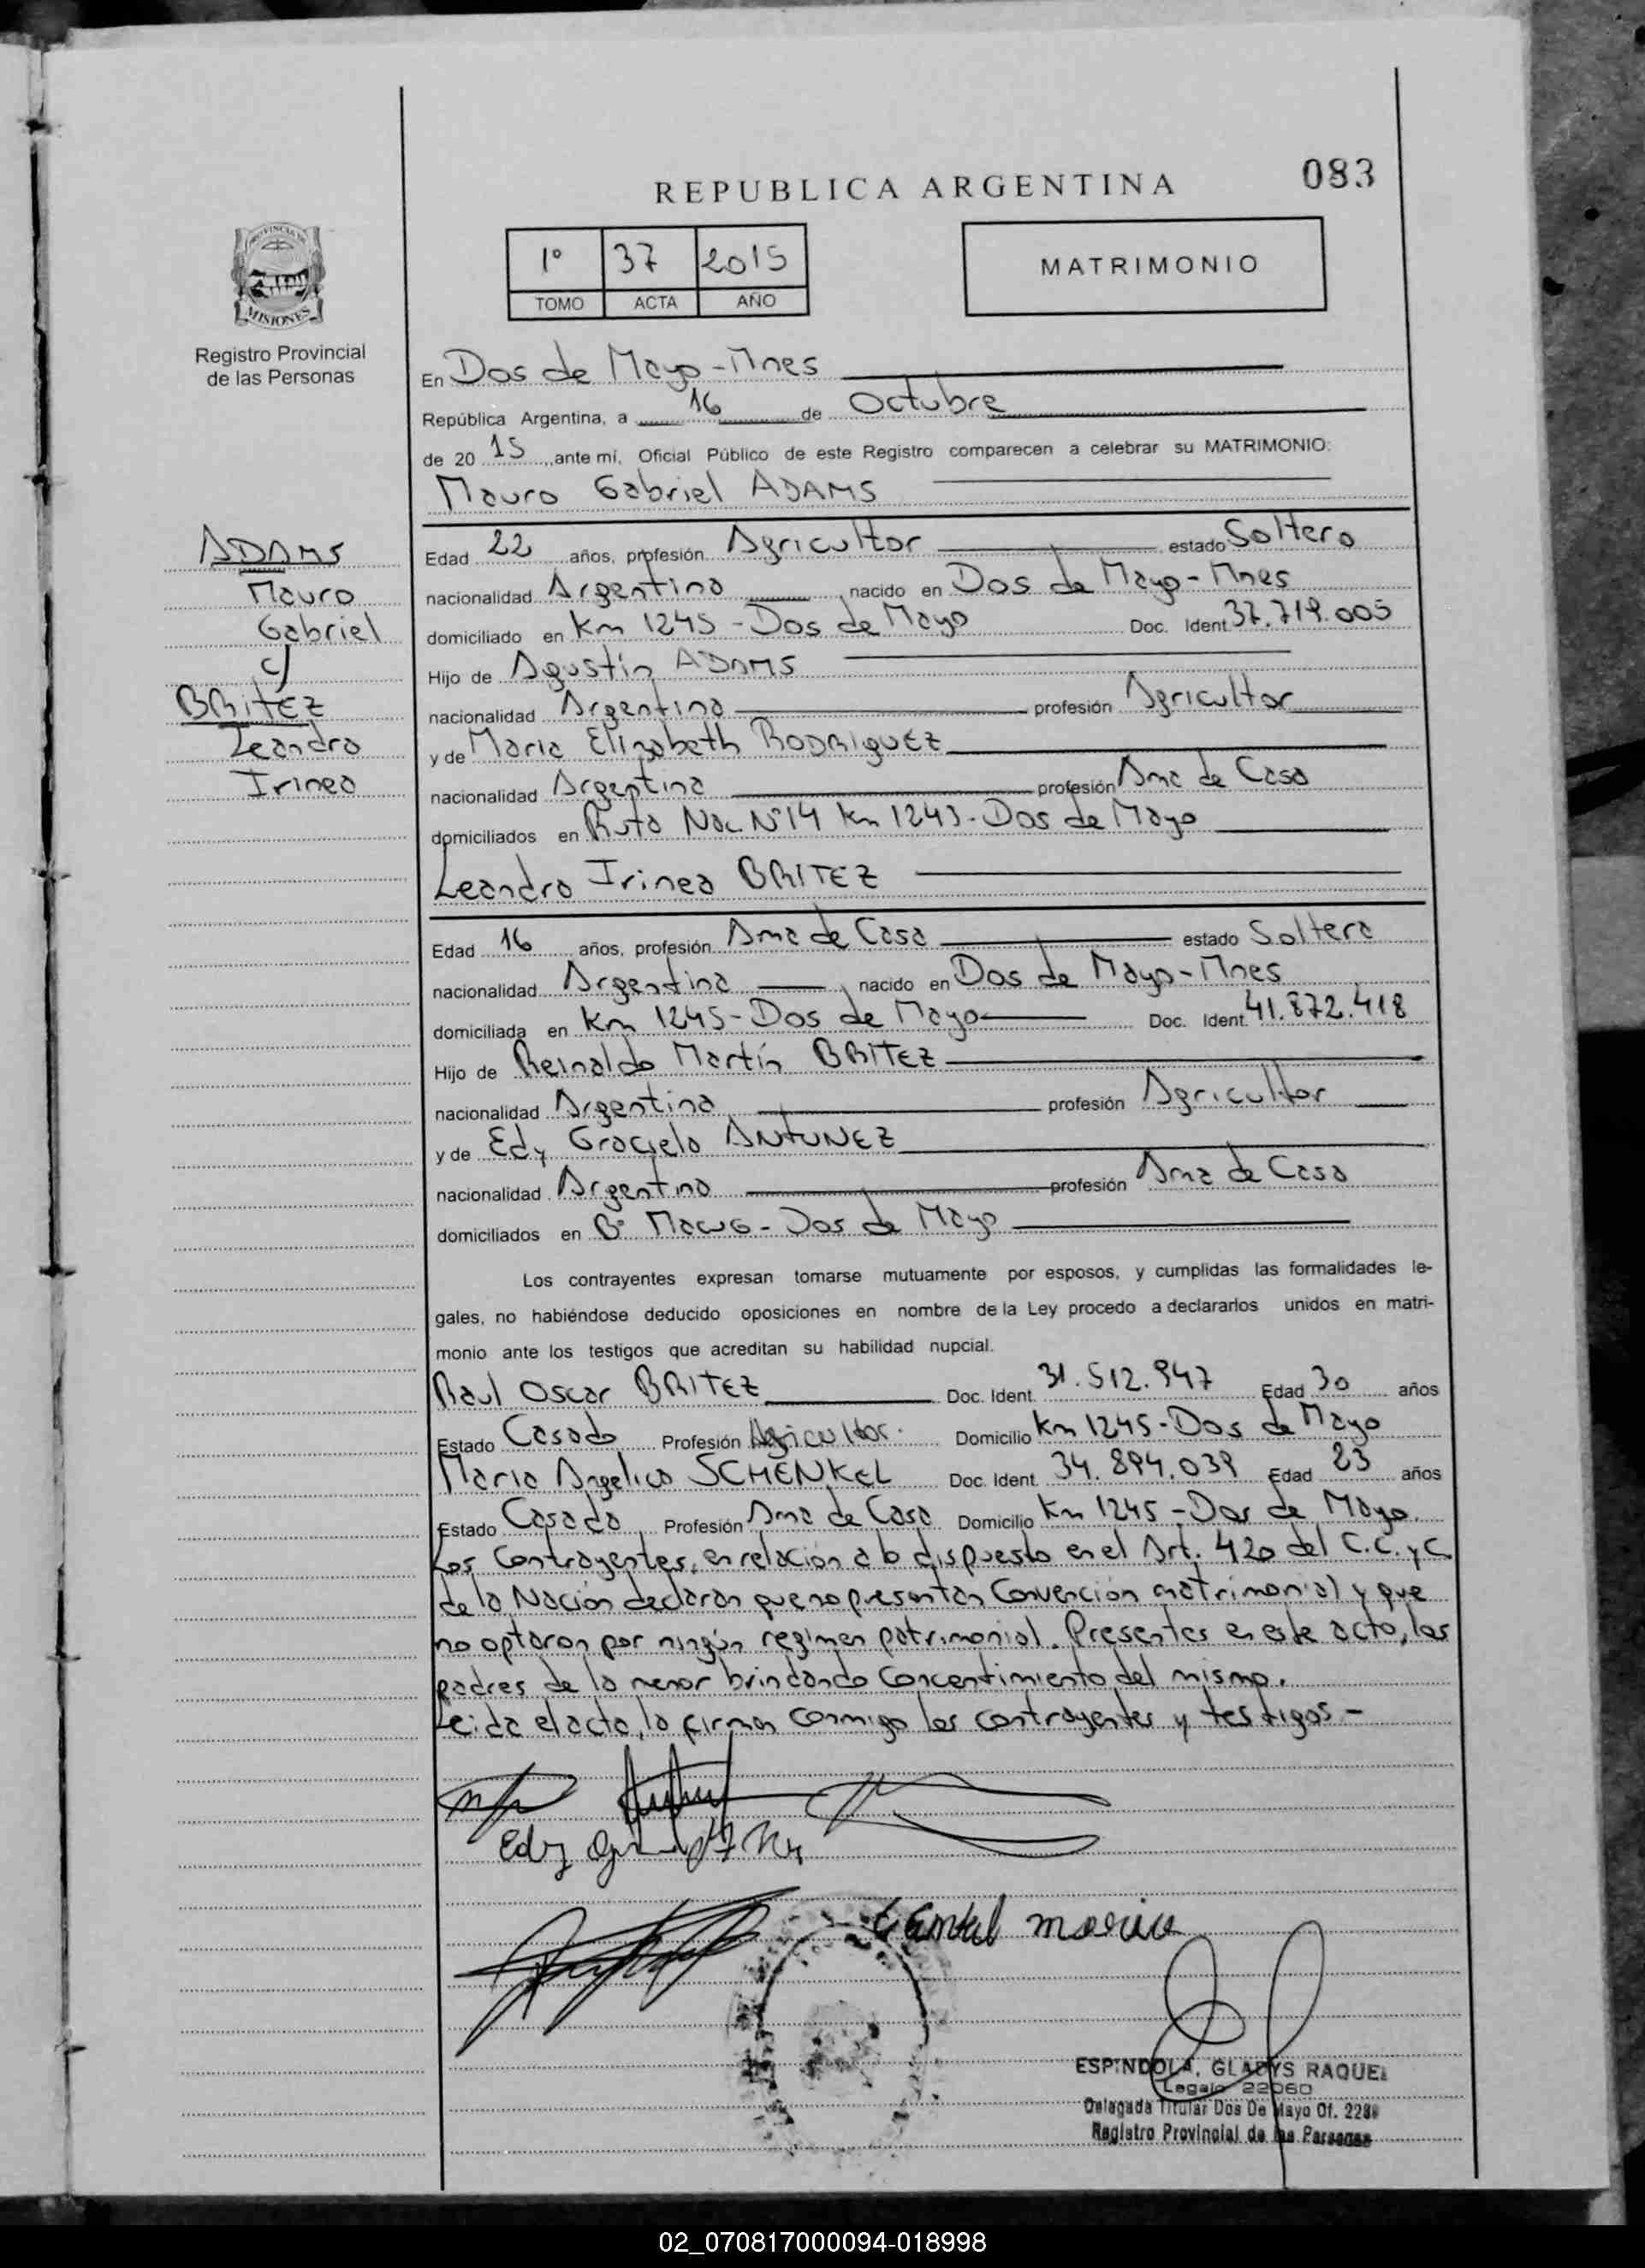 083
REPUBLICA ARGENTINA
1º 37 2015
TOMO ACTA AÑO
MATRIMONIO
PROVINCIA DE
MISIONES
Registro Provincial
de las Personas
En Dos de Mayo-Mnes
República Argentina, a 16 de Octubre
de 20 15 ante mí, Oficial Público de este Registro comparecen a celebrar su MATRIMONIO:
Mauro Gabriel ADAMS
ADAMS
Mauro
Gabriel
c/
BRITEZ
Leandra
Irinea
Edad 22 años, profesión Agricultor estado Soltero
nacionalidad Argentina, nacido en Dos de Mayo-Mnes
domiciliado en Km 1245-Dos de Mayo Doc. Ident. 37.719.005
Hijo de Agustín ADAMS
nacionalidad Argentina profesión Agricultor
y de Maria Elizabeth RODRIGUEZ
nacionalidad Argentina profesión Ama de Casa
domiciliados en Ruta Nac. Nº14 Km 1243-Dos de Mayo
Leandra Irinea BRITEZ
Edad 16 años, profesión Ama de Casa estado Soltera
nacionalidad Argentina, nacido en Dos de Mayo-Mnes
domiciliada en Km 1245-Dos de Mayo Doc. Ident. 41.872.418
Hijo de Reinaldo Martín BRITEZ
nacionalidad Argentina profesión Agricultor
y de Edy Graciela ANTUNEZ
nacionalidad Argentina profesión Ama de Casa
domiciliados en Bº - Dos de Mayo
Los contrayentes expresan tomarse mutuamente por esposos, y cumplidas las formalidades le-
gales, no habiéndose deducido oposiciones en nombre de la Ley procedo a declararlos unidos en matri-
monio ante los testigos que acreditan su habilidad nupcial.
Raul Oscar BRITEZ Doc. Ident. 31.512.947 Edad 30 años
Estado Casado Profesión Agricultor. Domicilio Km 1245-Dos de Mayo
Maria Angelica SCHENKEL Doc. Ident. 34.894.039 Edad 23 años
Estado Casada Profesión Ama de Casa Domicilio Km 1245-Dos de Mayo.
Los Contrayentes, en relación a lo dispuesto en el Art. 420 del C.C. y C.
de la Nación declaran que no presentan Convención matrimonial y que
no optaron por ningún regimen patrimonial. Presentes en este acto, los
padres de la menor brindando Concentimiento del mismo.
Leida el acta, la firman conmigo los contrayentes y testigos-
Edy
maria
ESPINDOLA, GLADYS RAQUEL
Legajo 22060
Delegada Titular Dos De Mayo Of. 228
Registro Provincial de las Personas
02_070817000094-018998